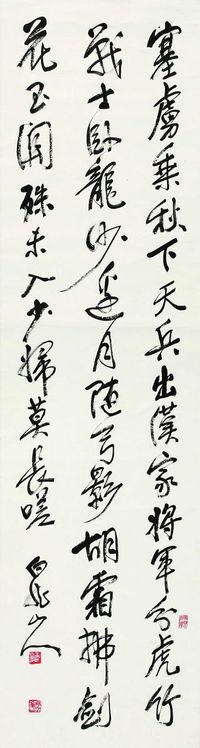 塞虜乘秋下天兵出漢家將軍分虎竹
戰士臥龍沙邊月隨弓影胡霜拂劍
花玉關殊未入少婦莫長嗟
山人